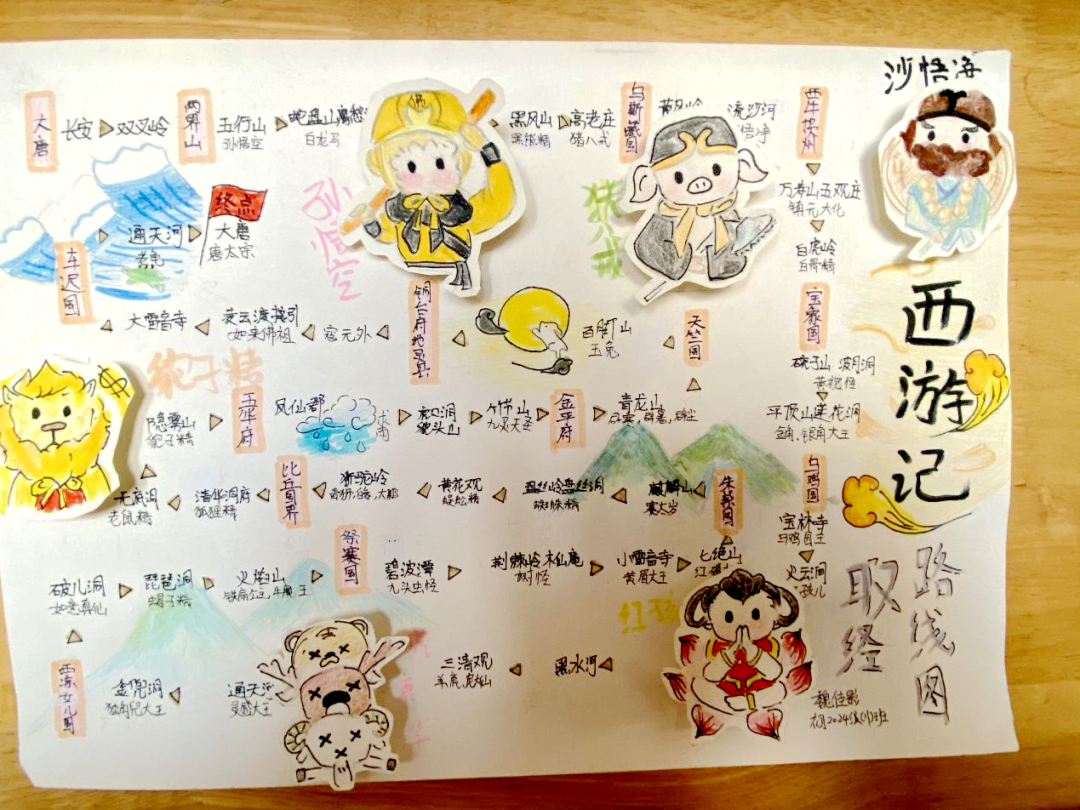 沙悟净
大唐
长安
双叉岭
两界山
五行山
孙悟空
蛇盘山鹰愁
白龙马
黑风山
黑熊精
高老庄
猪八戒
乌斯藏国
黄风岭
流沙河
悟净
万寿山五观庄
镇元大仙
白虎岭
白骨精
宝象国
碗子山 波月洞
黄袍怪
平顶山莲花洞
金角、银角大王
乌鸡国
宝林寺
乌鸡国王
火云洞
孩儿
黑水河
三清观
羊鹿虎
车迟国
通天河
灵感大王
金兜洞
独角兕大王
西凉女儿国
破儿洞
如意真仙
琵琶洞
蝎子精
火焰山
铁扇公主,牛魔王
祭赛国
碧波潭
九头虫怪
荆棘岭木仙庵
树怪
小雷音寺
黄眉大王
七绝山
红
朱紫国
麒麟山
赛太岁
盘丝岭盘丝洞
蜘蛛精
黄花观
蜈蚣精
狮驼岭
比丘国界
清华洞府
狐狸精
无底洞
老鼠精
隐雾山
豹子精
玉华府
凤仙郡
求雨
豹头山
竹节山
九灵元圣
金平府
青龙山
天竺国
百脚山
玉兔
铜台府地灵县
寇元外
凌云渡接引
如来佛祖
大雷音寺
通天河
老龟
终点
大唐
唐太宗
孙悟空
猪八戒
豹子精
红孩
西游记
取经
路线图